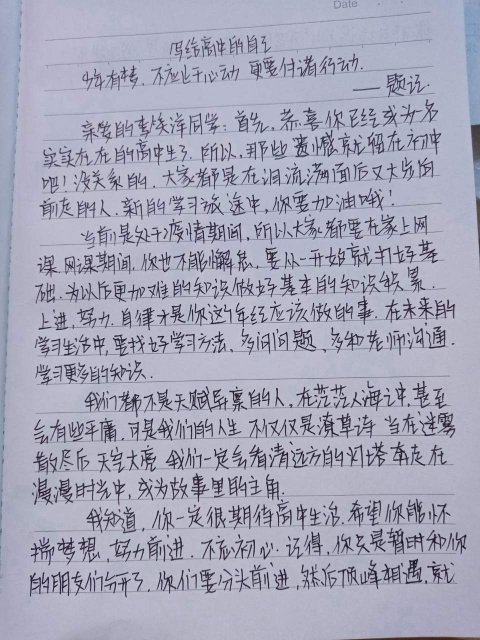 Date
写给高中的自己
少年有梦，不应止于心动，更要付诸行动。
——题记
亲爱的李俊洋同学：首先，恭喜你已经成为名
实实在在的高中生了，所以，那些遗憾就留在初中
吧！没关系的，大家都是在泪流满面后又大步向
前走的人，新的学习旅途中，你要加油哦！
当前是处于疫情期间，所以大家都要在家上网
课，网课期间，你也不能懈怠，要从一开始就打好基
础，为以后更加难的知识做好基本的知识积累。
上进，努力，自律才是你这个年纪应该做的事，在未来的
学习生活中，要找好学习方法，多问问题，多和老师沟通，
学习更多的知识。
我们都不是天赋异禀的人，在茫茫人海之中，甚至
会有些平庸，可是我们的人生不仅仅是潦草诗，当在迷雾
散尽后，天空大亮，我们一定会看清远方的灯塔，奔走在
漫漫时光中，成为故事里的主角。
我知道，你一定很期待高中生活，希望你能怀
揣梦想，努力前进，不忘初心，记得，你只是暂时和你
的朋友们分开了，你们要分头前进，然后顶峰相遇，就